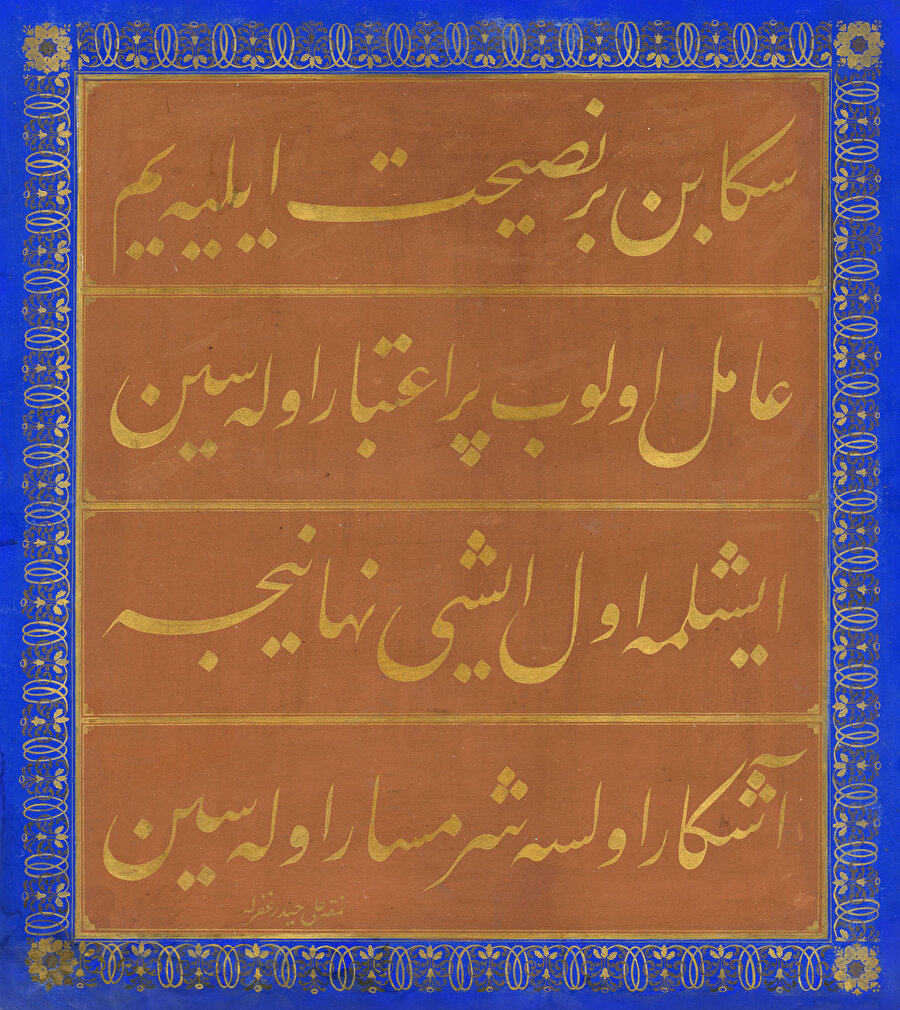 سكا بن بر نصيحت ايليه يم
عامل اولوب پر اعتبار اوله سين
ايشلمه اول ايشى نهانيجه
آشكار اولسه شرمسار اوله سين
نمقه على حيدر غفر له